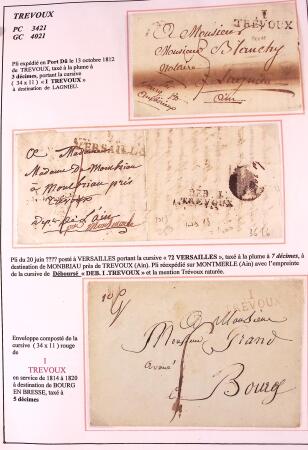 TREVOUX
PC 3421
GC 4021
Pli expédié en Port Dû le 13 octobre 1812
de TREVOUX, taxé à la plume à
3 décimes, portant la cursive
( 34 x 11 ) « 1 TREVOUX »
à destination de LAGNIEU.
1
TREVOUX
A Monsieur
Monsieur Blanchy
notaire
Ain
72
VERSAILLES
a Madame
Madame De Monbriau
a Monbriau près
Trévoux
Dep. de l'ain
par Montmerle
DEB. 1
.TREVOUX
Pli du 20 juin ???? posté à VERSAILLES portant la cursive « 72 VERSAILLES », taxé à la plume à 7 décimes, à
destination de MONBRIAU près de TREVOUX (Ain). Pli réexpédié sur MONTMERLE (Ain) avec l'empreinte
de la cursive de Déboursé « DEB. 1 .TREVOUX » et la mention Trévoux raturée.
Enveloppe composté de la
cursive ( 34 x 11 ) rouge
de
1
TREVOUX
en service de 1814 à 1820
à destination de BOURG
EN BRESSE, taxé à
5 décimes
TREVOUX
a Monsieur
Monsieur Grand
avoué
à Bourg